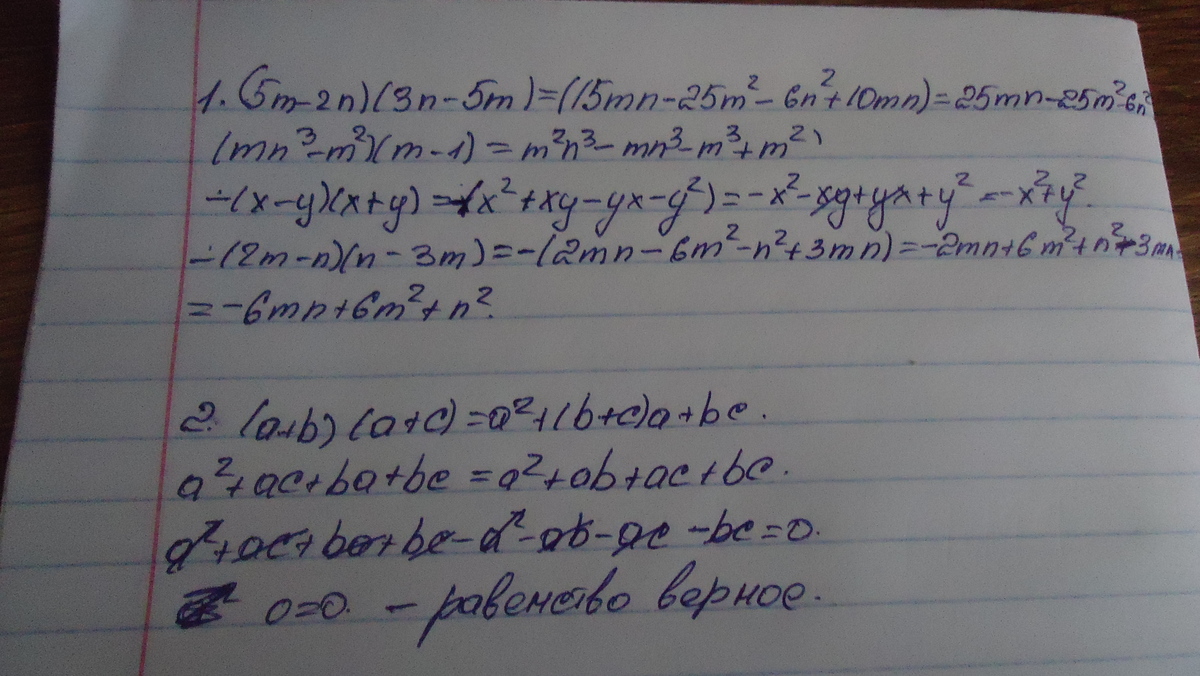 1. (5m-2n)(3n-5m)=(15mn-25m²-6n²+10mn)=25mn-25m²-6n²
(mn³-m²)(m-1)=m²n³-mn³-m³+m²
-(x-y)(x+y)=-(x²+xy-yx-y²)=-x²-xy+yx+y²=-x²+y².
-(2m-n)(n-3m)=-(2mn-6m²-n²+3mn)=-2mn+6m²+n²-3mn=
=-6mn+6m²+n².
2. (a+b)(a+c)=a²+(b+c)a+bc.
a²+ac+ba+bc=a²+ab+ac+bc.
a²+ac+ba+bc-a²-ab-ac-bc=0.
0=0. - равенство верное.